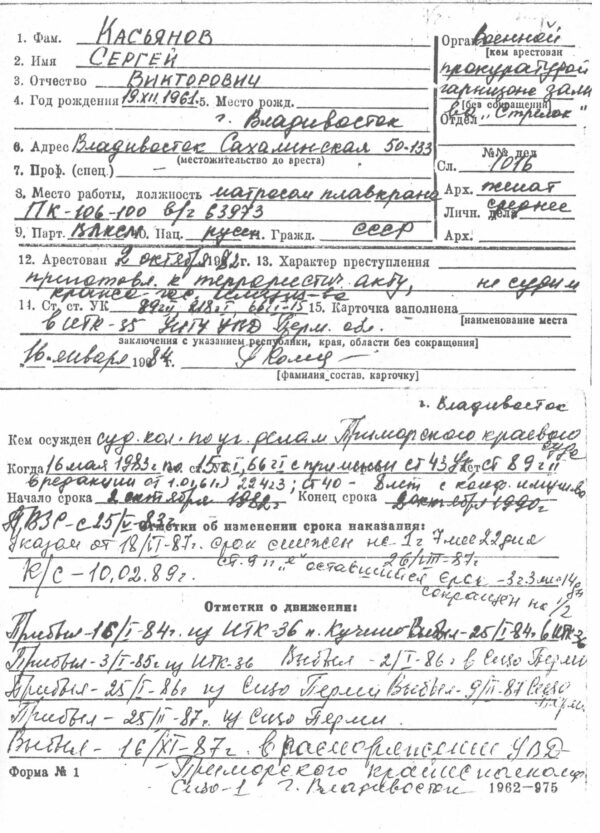 1. Фам. КАСЬЯНОВ
2. Имя СЕРГЕЙ
3. Отчество ВИКТОРОВИЧ
4. Год рождения 19.XII.1961. 5. Место рожд.
г. Владивосток
6. Адрес Владивосток Сахалинская 50-133
(местожительство до ареста)
7. Проф. (спец.)
8. Место работы, должность матросом плавкрана
ПК-106-100 в/ч 63973
9. Парт. ВЛКСМ 10. Нац. русск. Гражд. СССР
Орган Военной
[кем арестован
прокуратурой
гарнизона зали
[без сокращений]
Отдел "Стрелок"
№№ дел
Сл. 1016
Арх. женат
Личн. дела среднее
Арх.
12. Арестован 2 октября 1982г. 13. Характер преступления
приготовл. к террористич. акту, не судим
14. Ст. ст. УК 15. Карточка заполнена
[наименование места
в ИТК-35 УИТУ УВД Перм. обл.
заключения с указанием республики, края, области без сокращения]
16 января 1984 г.
[фамилия состав. карточку]
г. Владивосток
Кем осужден суд. кол. по уг. делам Приморского краевого суда
Когда 16 мая 1983г. по ст. 15 ч I, 66 ч I с примен. ст 43 УК ст 89 ч II
в редакции от ст 40 - 8 лет с конф. имущ-ва
Начало срока 2 октября 1982г. Конец срока 2 октября 1990г
ПВЗР-с 25/V-83г.
Отметки об изменении срока наказания:
Указом от 18/VI-87г. срок снижен на 1г 7 мес 22 дня
26/VIII-87г
ст. 9 п "я" оставшийся срок - 3г 3 м 14 дн
сокращен на 1/2
К/С - 10.02.89г.
Отметки о движении:
Прибыл - 16/I-84г. из ИТК-36 п. Кучино Выбыл - 25/I-84г. в ИТК-36
Прибыл - 3/I-85г. из ИТК-36 Выбыл - 2/I-86г. в Сизо Перми
Прибыл - 25/I-86г. из Сизо Перми Выбыл - 9/II-87 Сизо Перми
Прибыл - 25/II-87г. из Сизо Перми.
Выбыл - 16/XI-87г. в распоряжении УВД
Приморского крайисполкома
Сизо-1 г. Владивосток
Форма № 1
1962-975